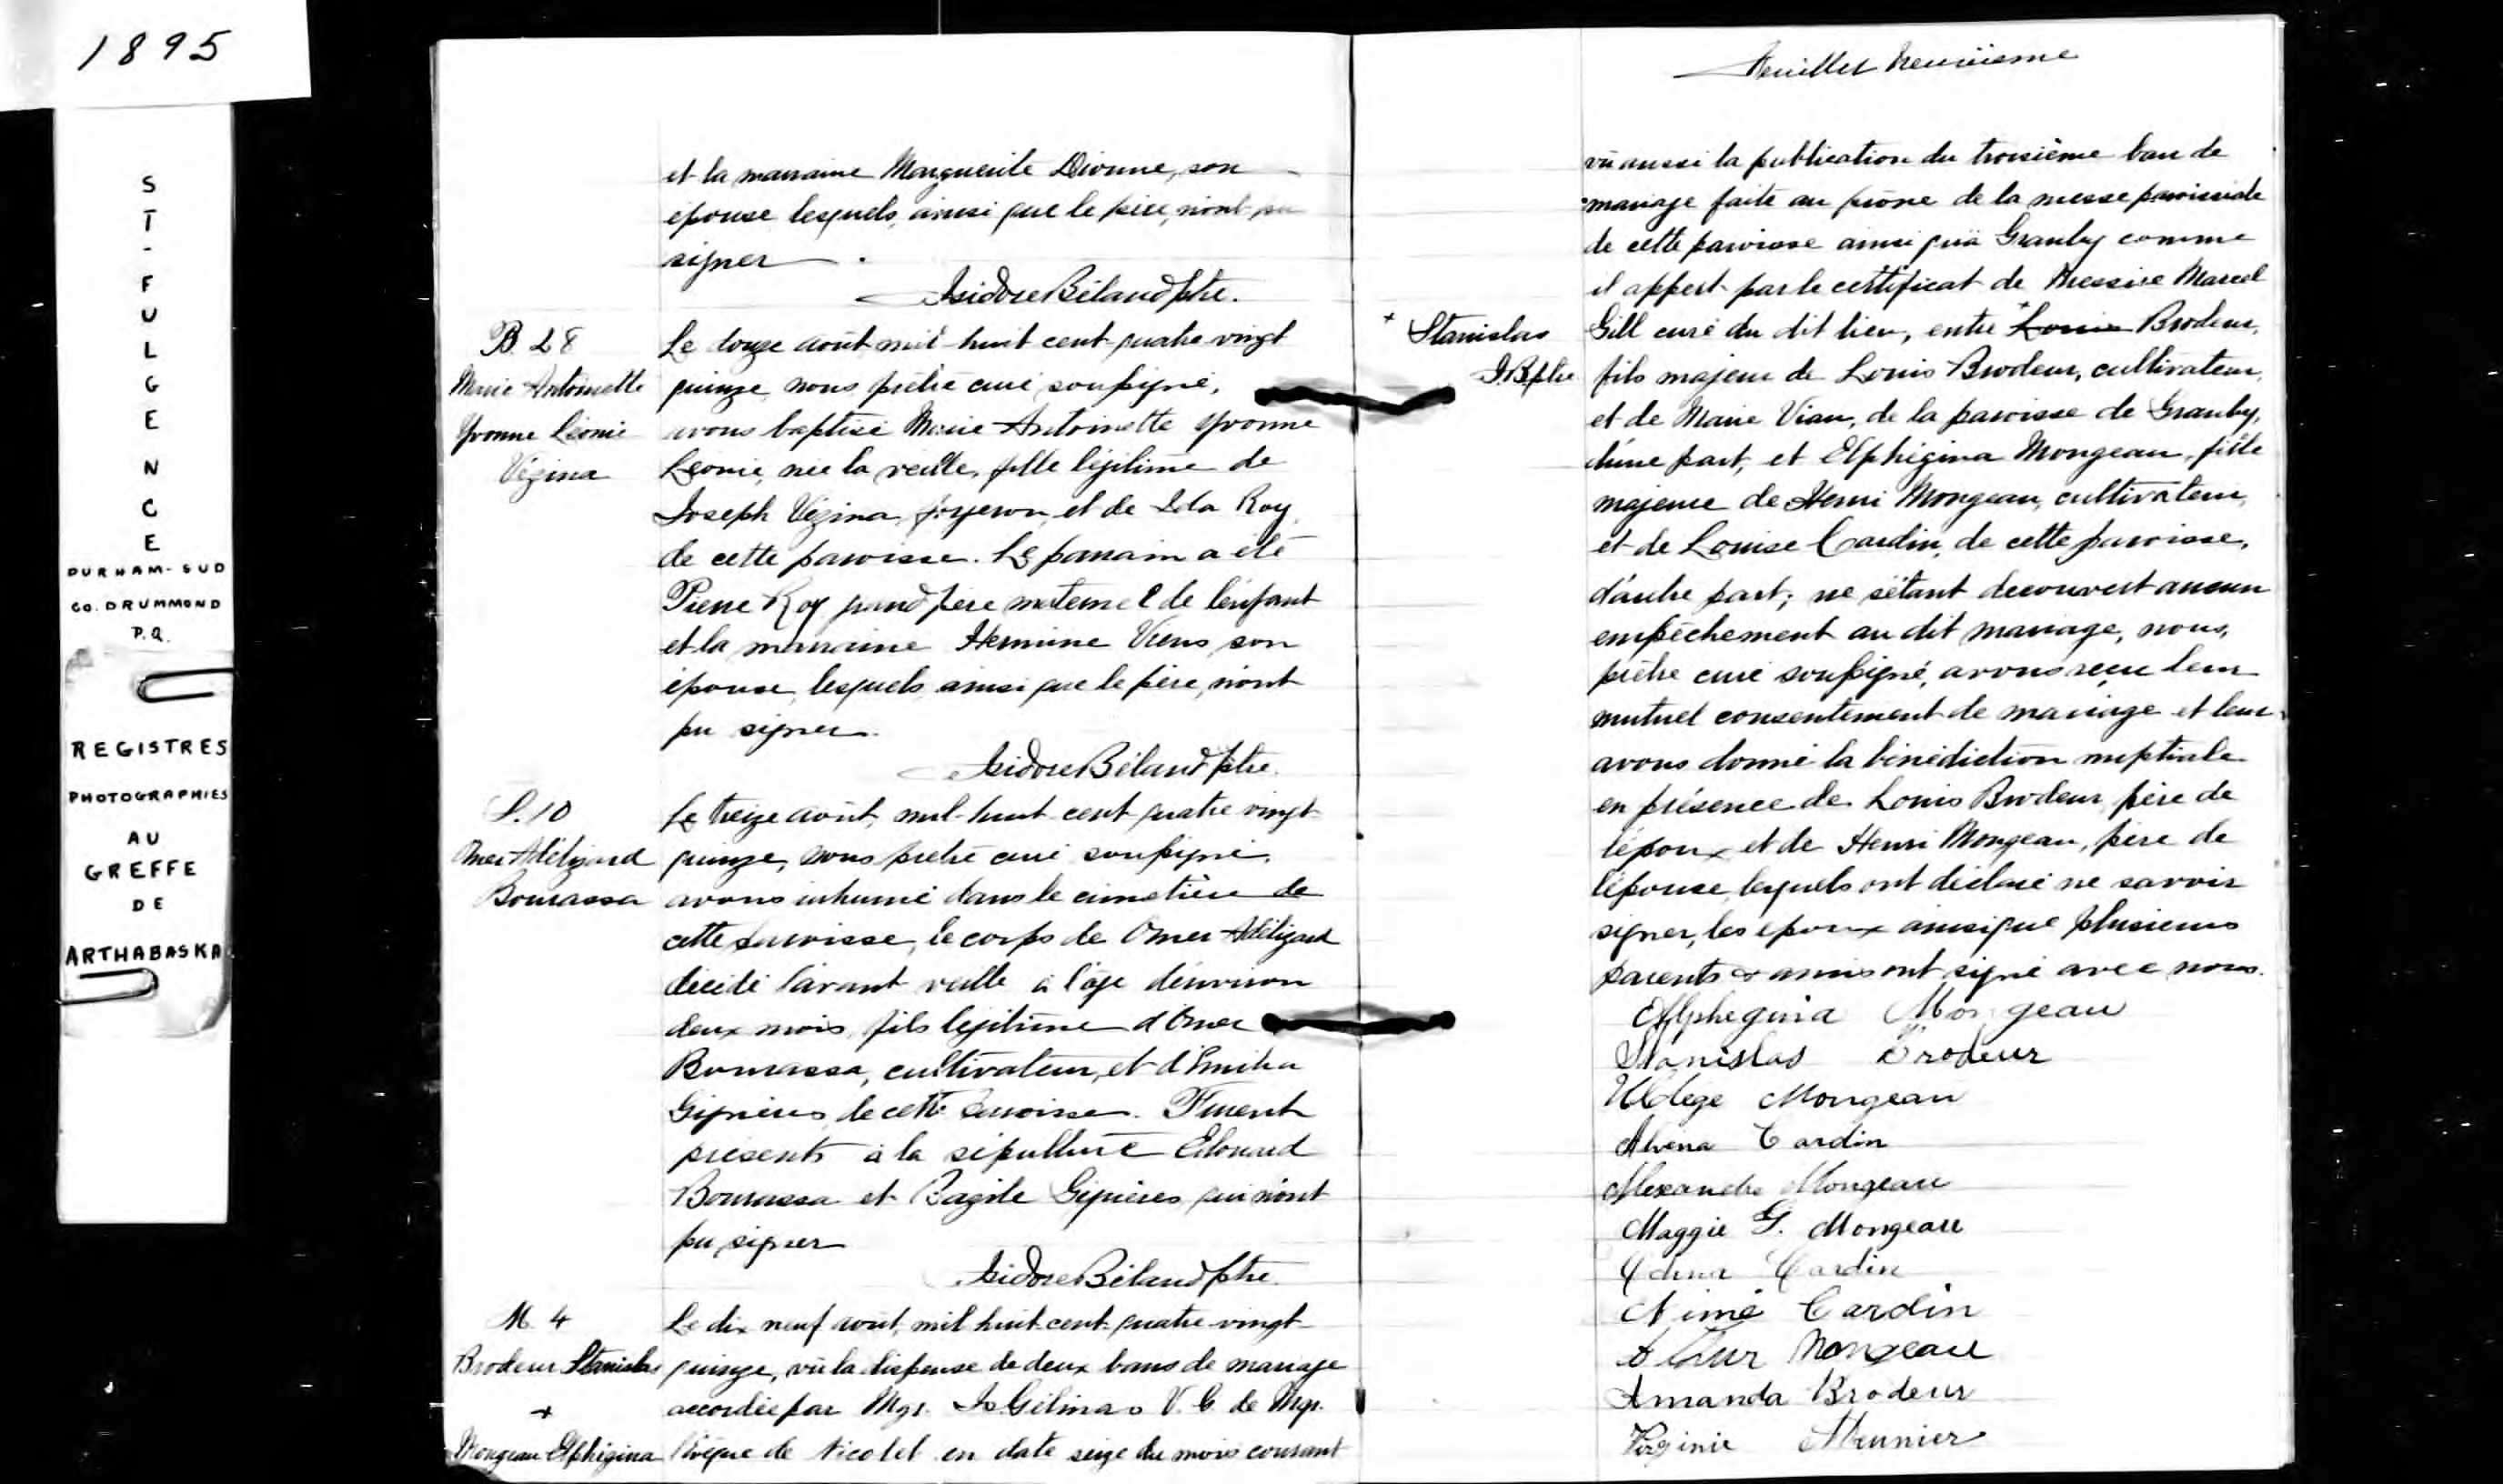 1895
ST-FULGENCE
DURHAM-SUD
CO. DRUMMOND
P.Q.
REGISTRES
PHOTOGRAPHIES
AU
GREFFE
DE
ARTHABASKA
et la marraine Marguerite Dionne, son
épouse lesquels, ainsi que le père, n'ont pu
signer.
Isidore Béland ptre.
B. 28
Marie Antoinette
Yvonne Léonie
Vézina
Le douze août mil-huit cent quatre vingt
quinze, nous prêtre curé soussigné,
avons baptisé Marie Antoinette Yvonne
Léonie, née la veille, fille légitime de
Joseph Vézina, forgeron, et de Ida Roy,
de cette paroisse. Le parrain a été
Pierre Roy grand père maternel de l'enfant
et la marraine Hermine Viens son
épouse, lesquels ainsi que le père, n'ont
pu signer.
Isidore Béland ptre.
S. 10
Omer Adélizard
Bourassa
Le treize août, mil-huit cent quatre vingt
quinze, nous prêtre curé soussigné,
avons inhumé dans le cimetière de
cette paroisse, le corps de Omer Adélizard
décédé l'avant veille à l'âge d'environ
deux mois, fils légitime d'Omer
Bourassa, cultivateur, et d'Emilia
de cette paroisse. Furent
présents à la sépulture Edouard
Bourassa et Bazile qui n'ont
pu signer
Isidore Béland ptre.
M. 4
Brodeur Stanislas
+
Mongeau Elphégina
Le dix neuf août, mil huit-cent-quatre-vingt
quinze, vû la dispense de deux bans de mariage
accordée par Mgr. Is. Gélinas V. G. de Mgr.
l'évêque de Nicolet en date seize du mois courant
Feuillet neuvième
vû aussi la publication du troisième ban de
mariage faite au prône de la messe paroissiale
de cette paroisse ainsi qu'à Granby comme
il appert par le certificat de Messire Marcel
+ Stanislas
I. B. ptre
Gill curé du dit lieu, entre + Louis Brodeur,
fils majeur de Louis Brodeur, cultivateur,
et de Marie Viau, de la paroisse de Granby,
d'une part, et Elphégina Mongeau, fille
majeure de Henri Mongeau, cultivateur,
et de Louise Cardin, de cette paroisse,
d'autre part; ne s'étant decouvert aucun
empêchement au dit mariage, nous,
prêtre curé soussigné, avons reçu leur
mutuel consentement de mariage et leur
avons donné la bénédiction nuptiale
en présence de Louis Brodeur, père de
l'époux et de Henri Mongeau, père de
l'épouse, lesquels ont déclaré ne savoir
signer, les époux ainsi que plusieurs
parents & amis ont signé avec nous.
Elphegina Mongeau
Stanislas Brodeur
Uldege Mongeau
Alvena Cardin
Alexandre Mongeau
Maggie G. Mongeau
Edina Cardin
Aimé Cardin
Mongeau
Amanda Brodeur
Virginie Meunier